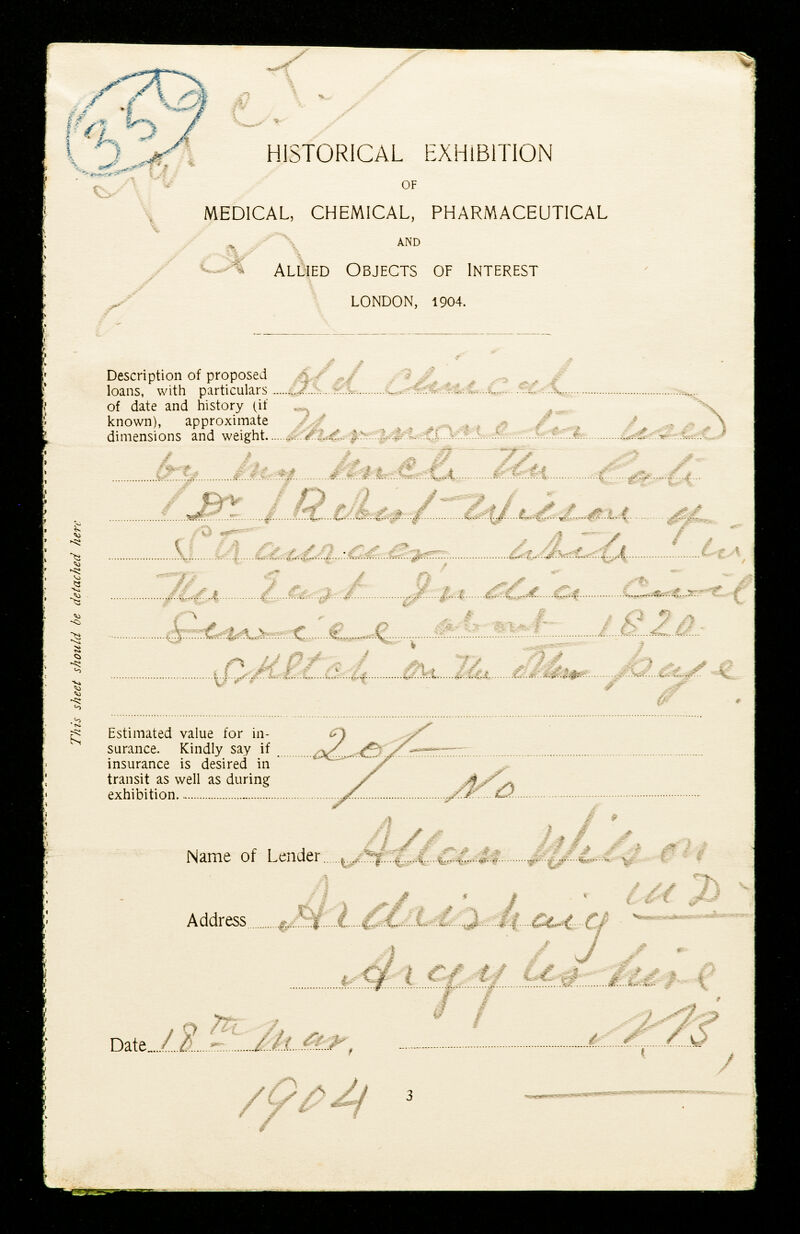 356
C.T.
HISTORICAL EXHIBITION
OF
MEDICAL, CHEMICAL, PHARMACEUTICAL
AND
ALLIED OBJECTS OF INTEREST
LONDON, 1904.
Description of proposed
loans, with particulars
of date and history (if
known), approximate
dimensions and weight.
Old Clinical
Thermometer used
by my uncle the late
Dr Robert Wilson of
Stranraer, while in
The East India Civil
Service, about 1820.
Sketch on the other page.
This sheet should be detached here
Estimated value for in-
surance. Kindly say if
insurance is desired in
transit as well as during
exhibition.
20/-
No
Name of Lender Allan Wilson
MD
Address Ardrishaig
Argyleshire
Date 18th Mar. N.B,
1904
3